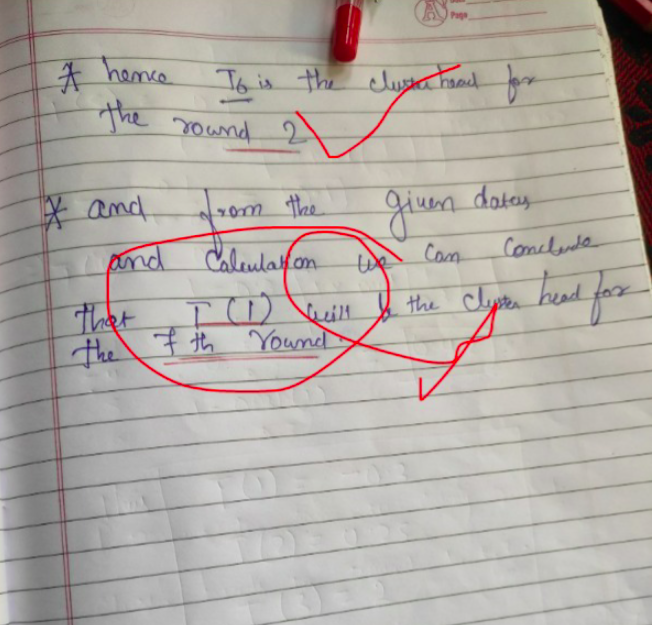 Page
* hence T6 is the cluster head for
the round 2
* and from the given datas
and Calculation we Can Conclude
that T(1) will be the cluster head for
the 7th round.